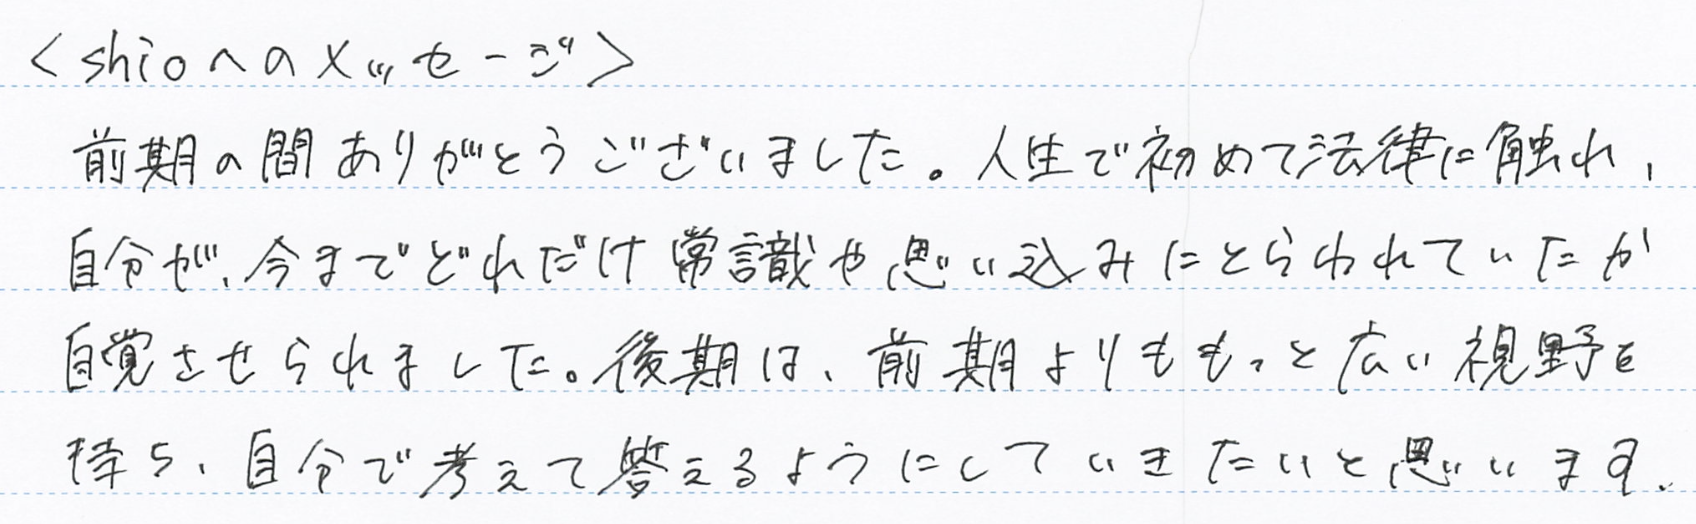 <shioへのメッセージ>
前期の間ありがとうございました。人生で初めて法律に触れ、
自分が、今までどれだけ常識や思い込みにとらわれていたか
自覚させられました。後期は、前期よりももっと広い視野を
持ち、自分で考えて答えるようにしていきたいと思います。